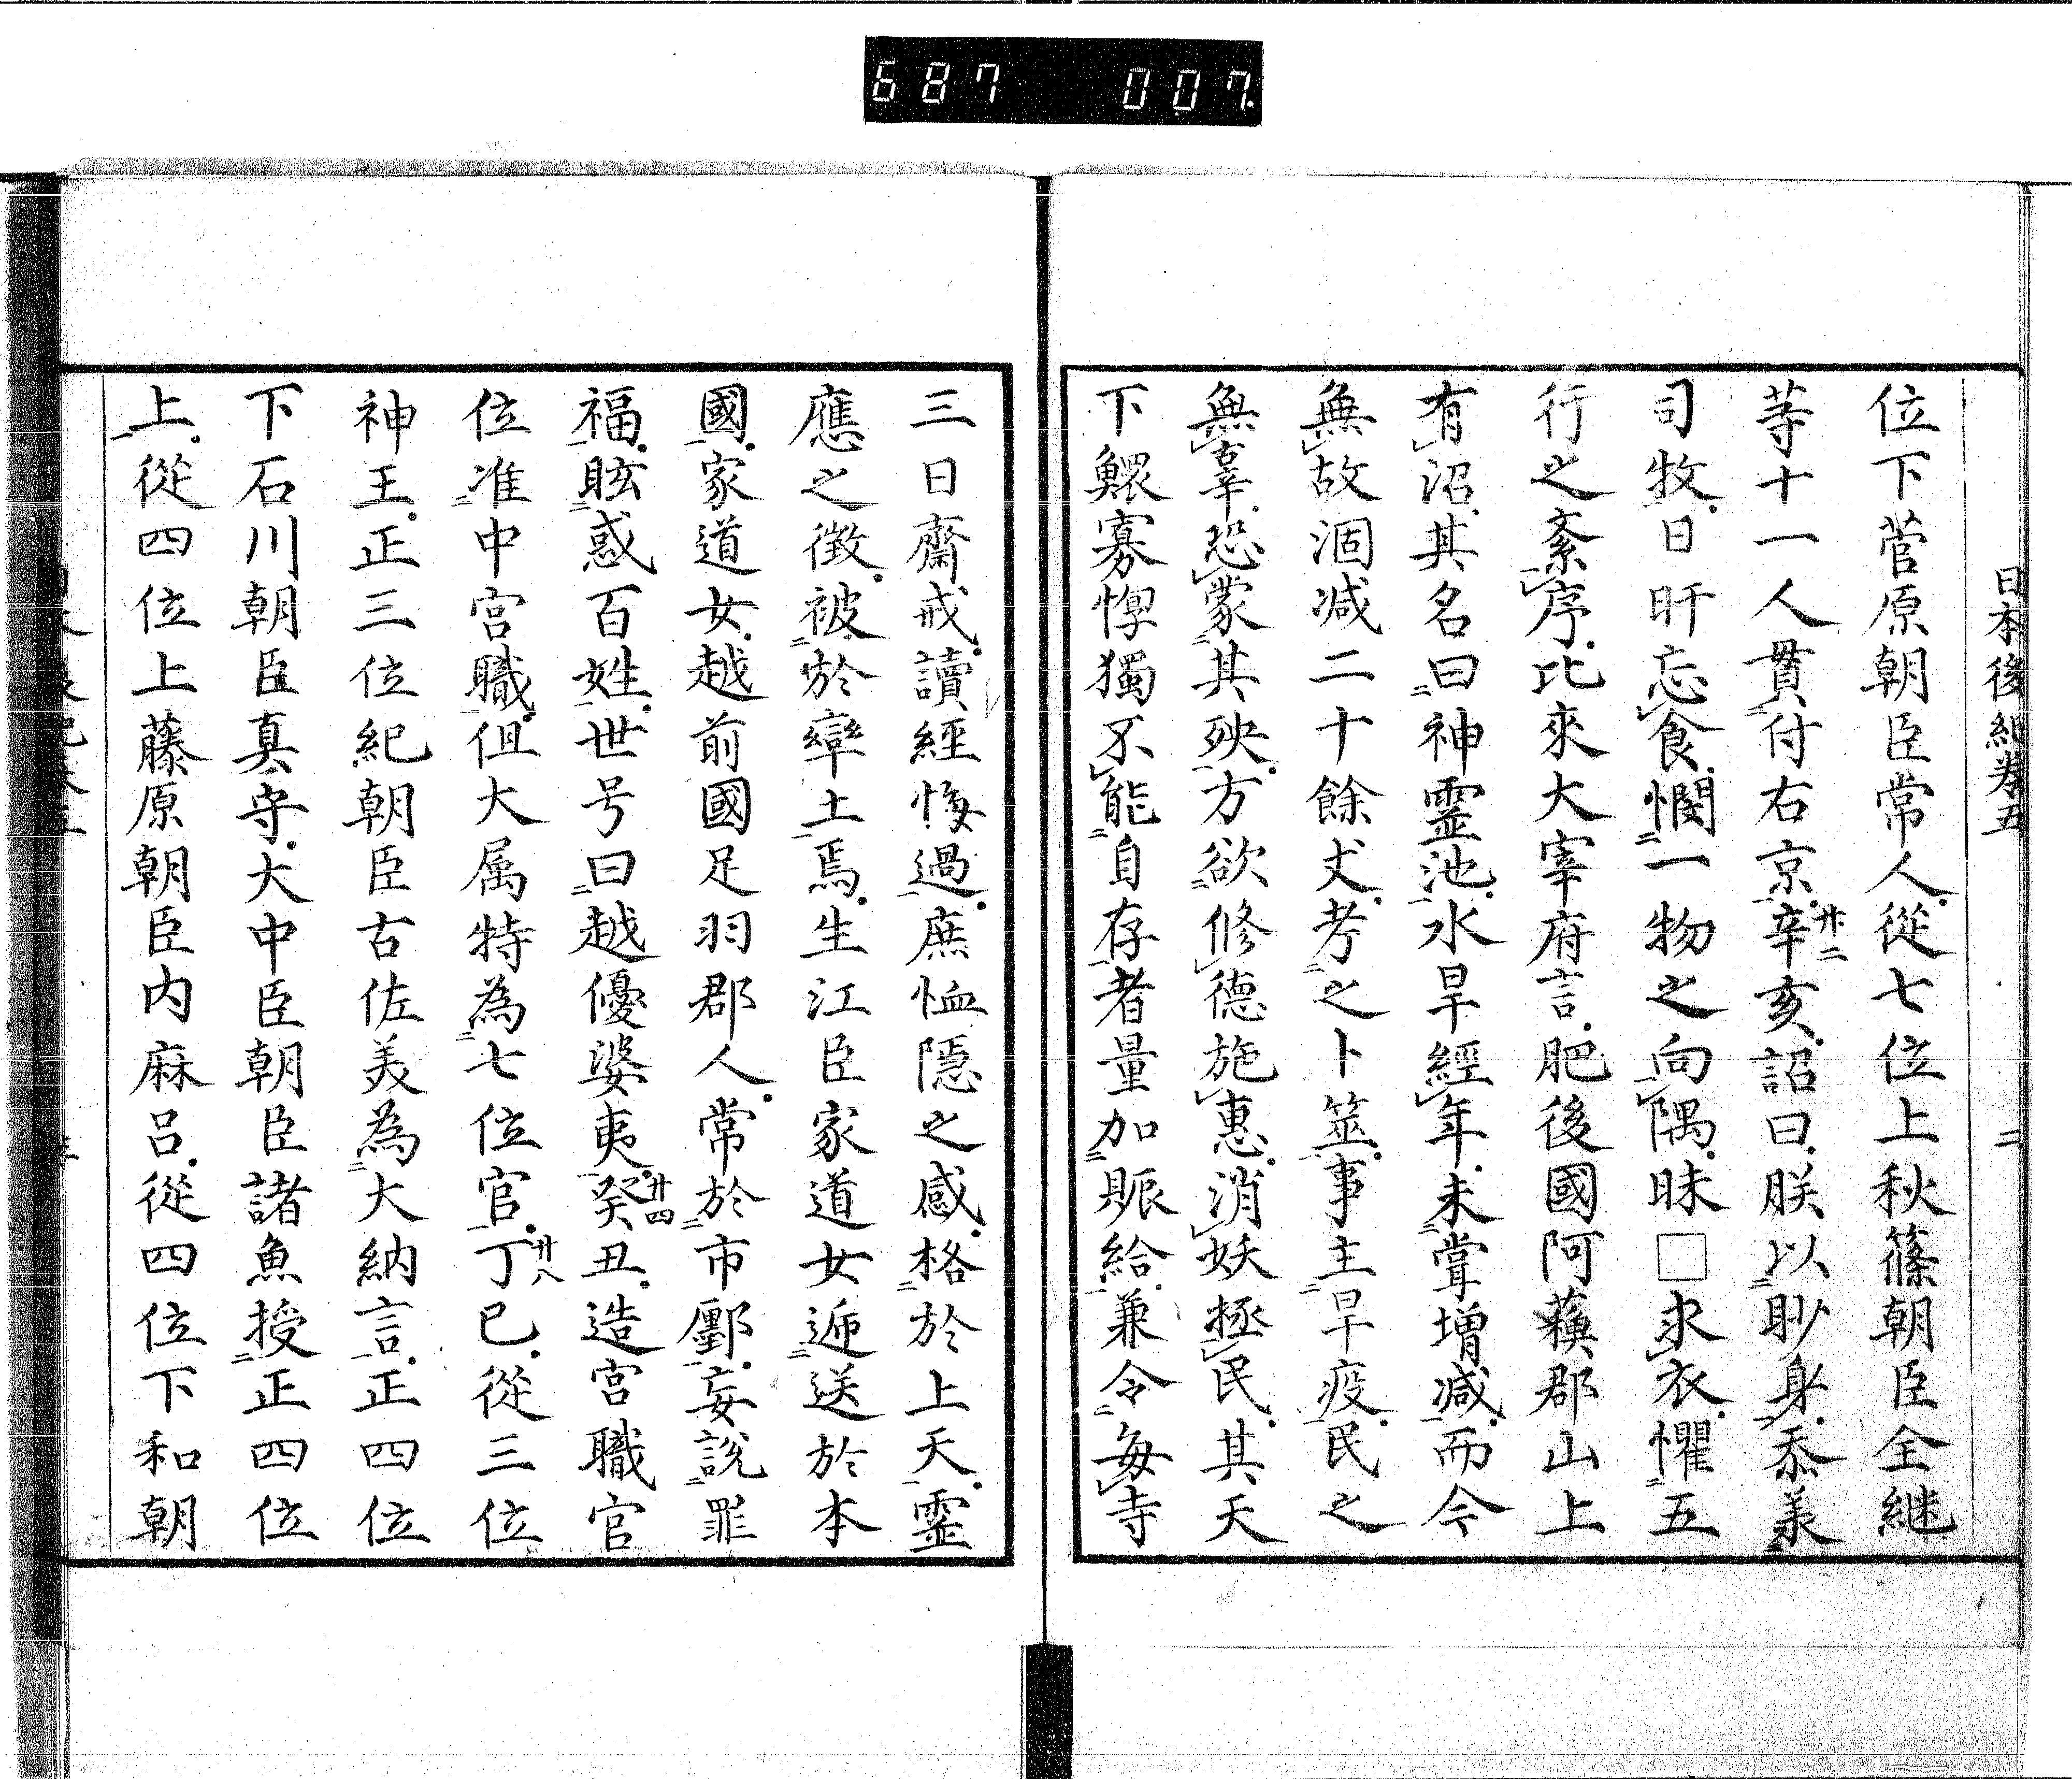 687 007.
日本後紀卷五 二
位下菅原朝臣常人從七位上秋篠朝臣全継
等十一人貫付右京辛亥詔曰朕以眇身忝承
廿二
司牧日旰忘食憫一物之向隅昧□求衣懼五
行之紊序比來大宰府言肥後國阿蘓郡山上
有沼其名曰神霊池水旱經年未甞増减而今
無故涸减二十餘丈考之卜筮事主旱疫民之
無辜恐蒙其殃方欲修德施惠消妖拯民其天
下鰥寡惸獨不能自存者量加賑給兼令每寺
三日齋戒讀經悔過庶恤隱之感格於上天靈
應之徴被於率土焉生江臣家道女逓送於本
國家道女越前國足羽郡人常於市鄽妄説罪
福眩惑百姓世号曰越優婆夷癸丑造宮職官
廿四
位准中宮職但大属特為七位官丁巳從三位
廿八
神王正三位紀朝臣古佐美為大納言正四位
下石川朝臣真守大中臣朝臣諸魚授正四位
上從四位上藤原朝臣内麻呂從四位下和朝